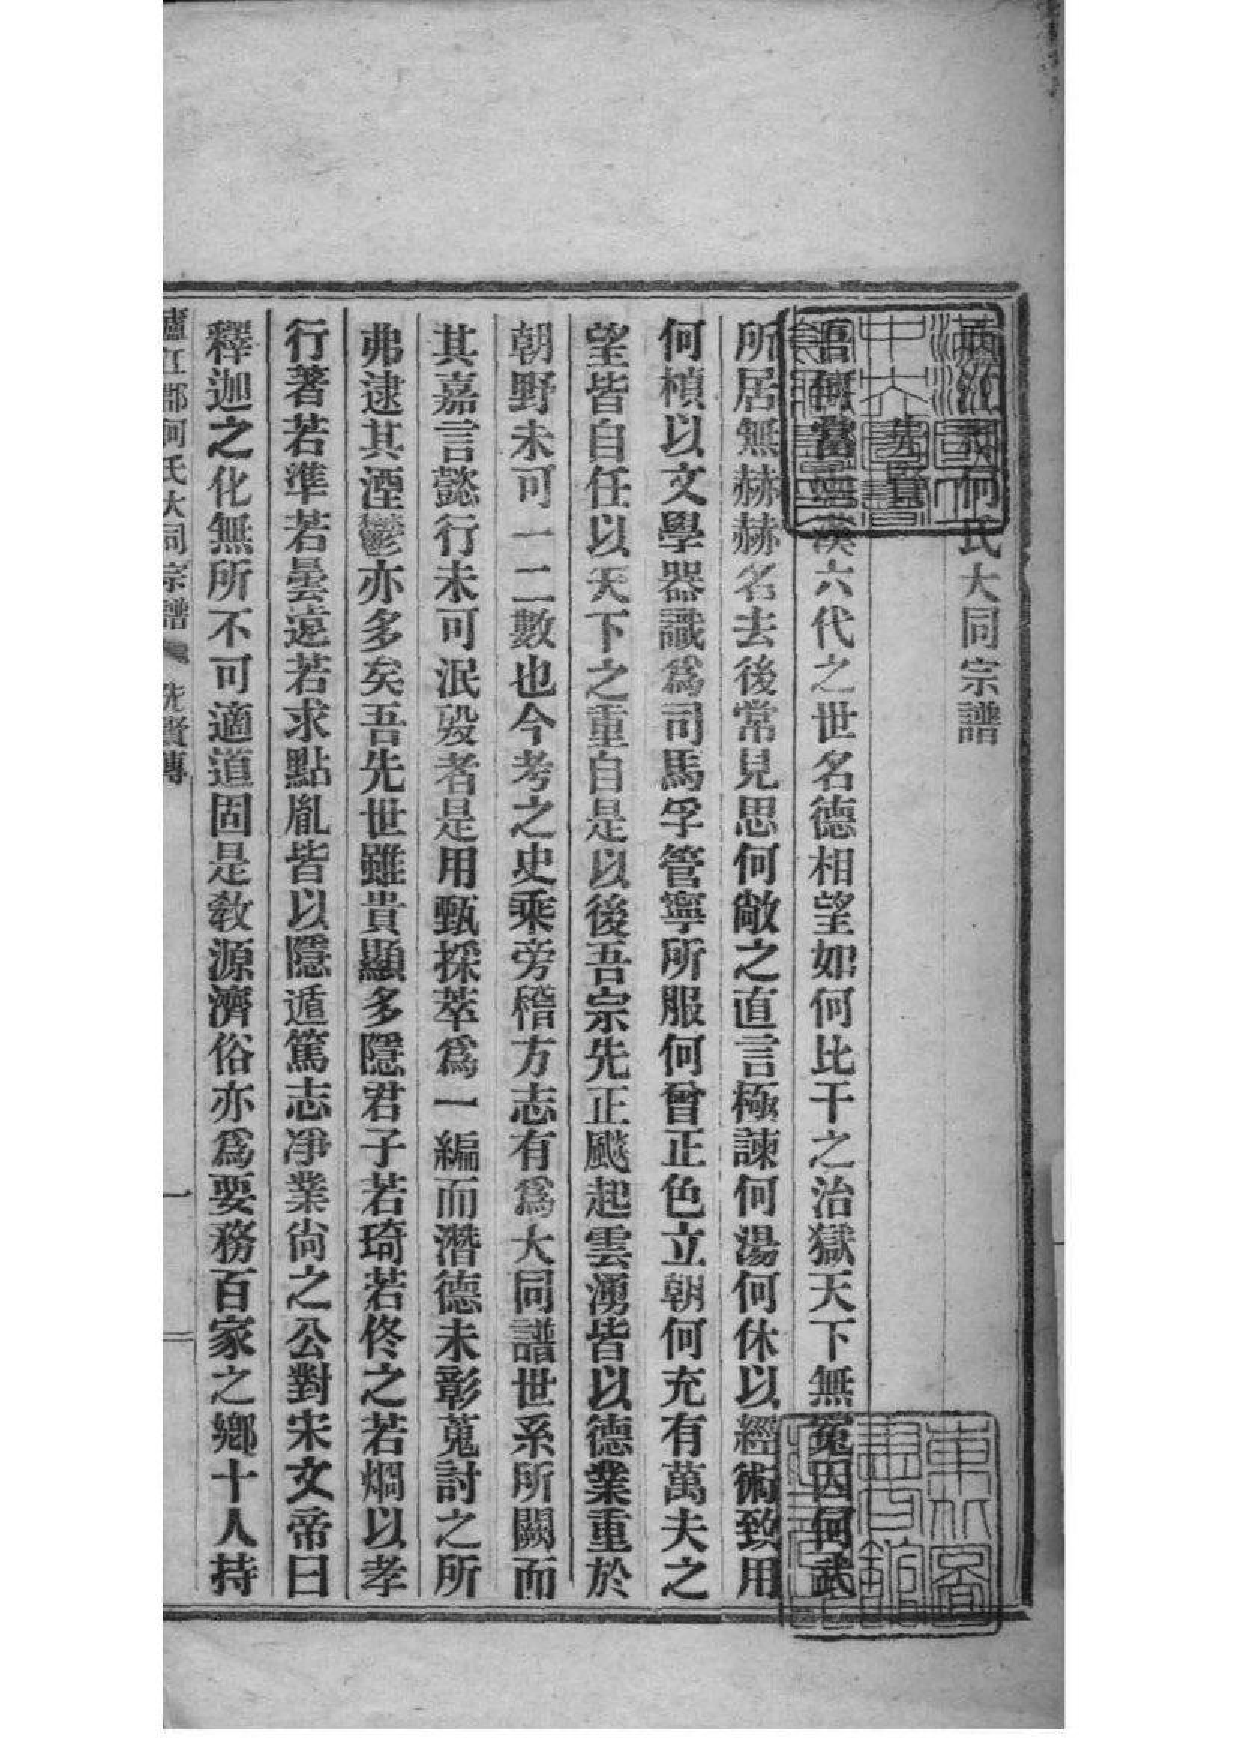 江郡何氏大同宗譜
吾何當漢六代之世名德相望如何比干之治獄天下無冤因何武
所居無赫赫名去後常見思何敞之直言極諫何湯何休以經術致用
何楨以文學器識爲司馬孚管寧所服何曾正色立朝何充有萬夫之
望皆自任以天下之重自是以後吾宗先正飈起雲湧皆以德業重於
朝野未可一二數也今考之史乘旁稽方志有爲大同譜世系所闕而
其嘉言懿行未可泯毁者是用甄採萃爲一編而潛德未彰蒐討之所
弗逮其湮鬱亦多矣吾先世雖貴顯多隱君子若琦若佟之若烱以孝
行著若準若曇遠若求點胤皆以隱遁篤志凈業尙之公對宋文帝曰
釋迦之化無所不可適道固是敎源濟俗亦爲要務百家之鄉十人持
廬江郡何氏大同宗譜 先賢傳 一